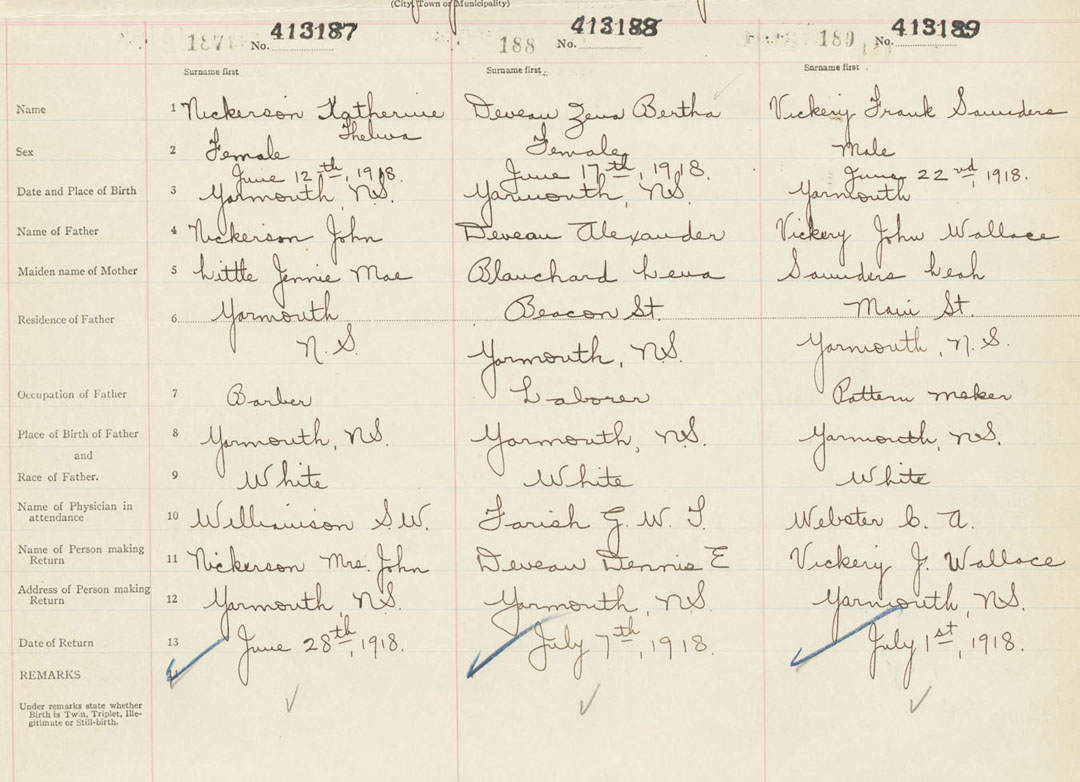 (City, Town or Municipality)
187 No. 413187 188 No. 413188 189 No. 413189
Surname first Surname first Surname first
Name 1 Nickerson Katherine Thelma Deveau Zena Bertha Vickery Frank Saunders
Sex 2 Female Female Male
June 12th, 1918. June 17th, 1918. June 22nd, 1918.
Date and Place of Birth 3 Yarmouth, N.S. Yarmouth, N.S. Yarmouth
Name of Father 4 Nickerson John Deveau Alexander Vickery John Wallace
Maiden name of Mother 5 Little Jennie Mae Blanchard Lena Saunders Leah
Residence of Father 6 Yarmouth Beacon St. Main St.
N.S. Yarmouth, N.S. Yarmouth, N.S.
Occupation of Father 7 Barber Laborer Pattern maker
Place of Birth of Father 8 Yarmouth, N.S. Yarmouth, N.S. Yarmouth, N.S.
and
Race of Father. 9 White White White
Name of Physician in
attendance 10 Williamson S.W. Farish G. W. T. Webster C. A.
Name of Person making
Return 11 Nickerson Mrs. John Deveau Dennis E Vickery J. Wallace
Address of Person making
Return 12 Yarmouth, N.S. Yarmouth, N.S. Yarmouth, N.S.
Date of Return 13 June 28th, 1918. July 7th, 1918. July 1st, 1918.
REMARKS 14
Under remarks state whether
Birth is Twin, Triplet, Ille-
gitimate or Still-birth.